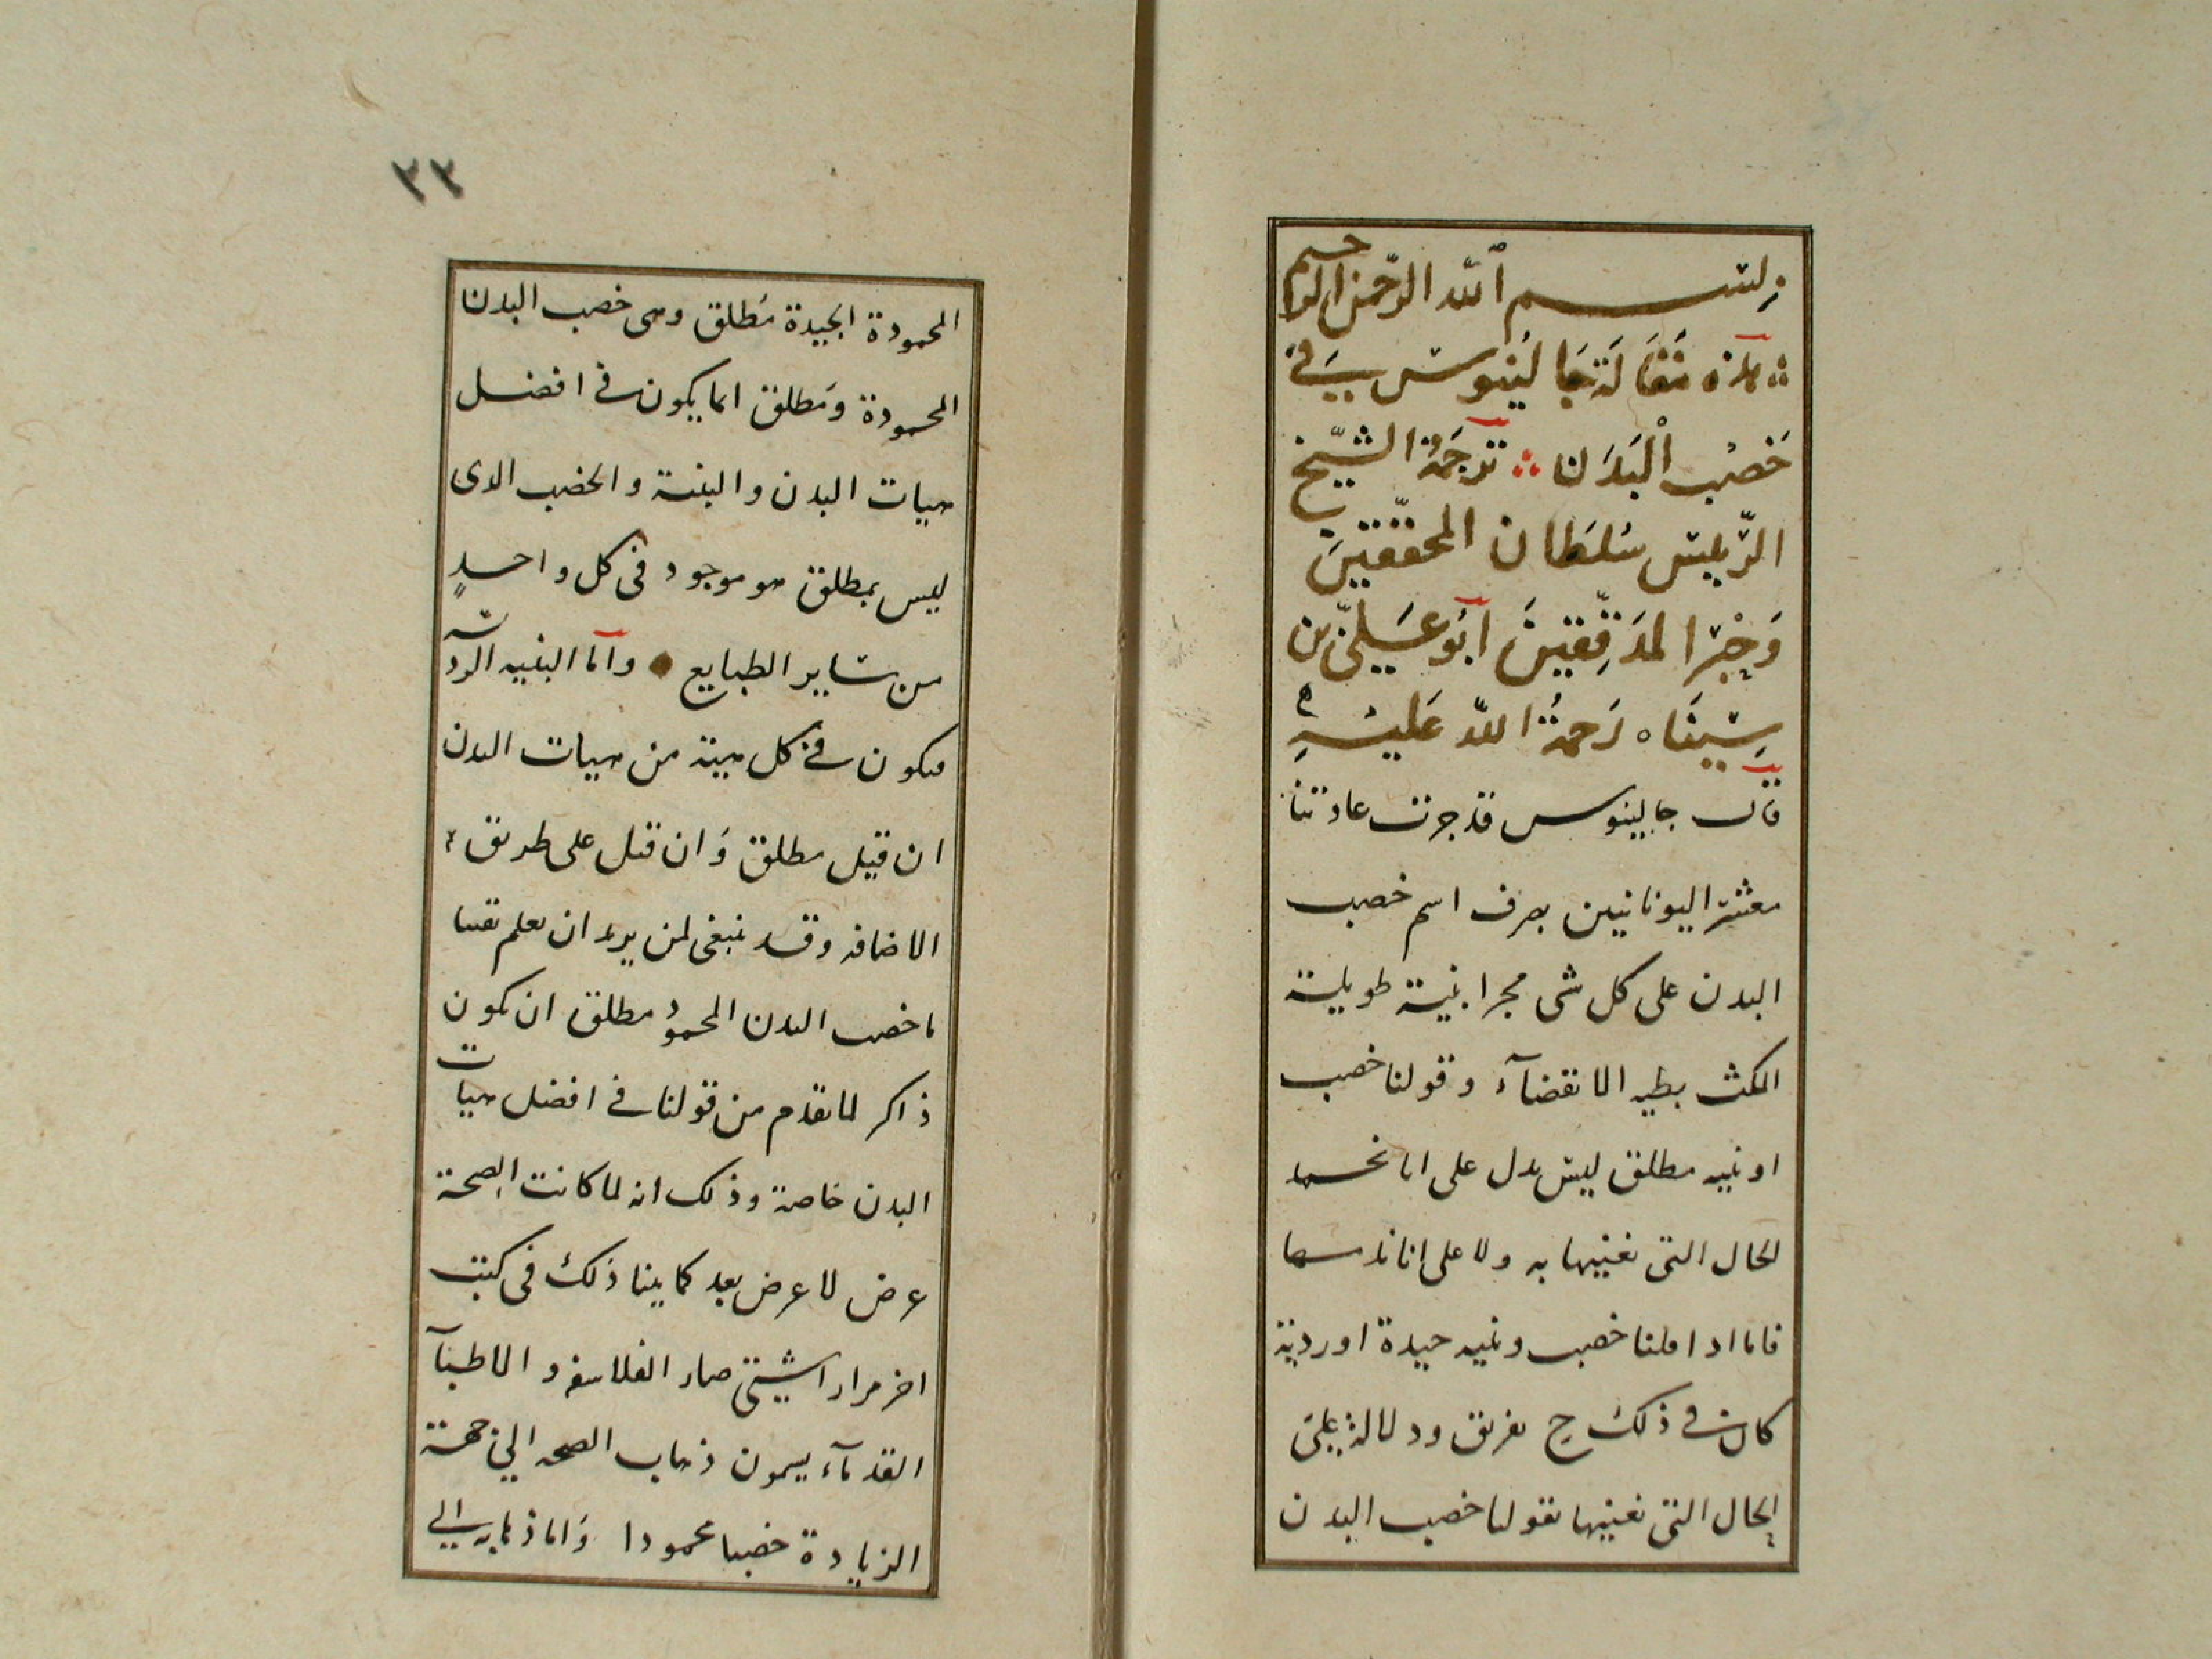 بسم الله الرحمن الرحيم
هذه مقالة جالينوس في
خصب البدن ترجمة الشيخ
الرييس سلطان المحققين
وخير المدققين ابو علي بن
سينا ه رحمة الله عليه
قال جالينوس قد جرت عادتنا
معشر اليونانيين بصرف اسم خصب
البدن على كل شى مجرا بنية طويلة
المكث بطيه الانقضآء وقولنا خصب
او بنيه مطلق ليس يدل على انا نحمد
الحال التى نعنيها به ولا على انا نذمها
فاما اذا قلنا خصب وبنيه جيدة او ردية
كان فى ذلك ح تفريق ودلالة على
الحال التى نعنيها بقولنا خصب البدن
٣٣
المحمودة الجيدة مطلق وهى خصب البدن
المحمودة ومطلق انما يكون فى افضل
هيات البدن والبنية والخصب الذى
ليس بمطلق هو موجود فى كل واحد
من ساير الطبايع وآما البنيه الردية
فيكون فى كل هيئة من هيات البدن
ان قيل مطلق وان قيل على طريق
الاضافه وقد ينبغى لمن يريد ان يعلم يقينا
ما خصب البدن المحمود مطلق ان يكون
ذاكر لما تقدم من قولنا فى افضل هيات
البدن خاصة وذلك انه لما كانت الصحة
عرض لا عرض بعد كما بينا ذلك فى كتب
اخر مرارا شتى صار الفلاسفه والاطبآ
القدمآء يسمون ذهاب الصحه الى جهة
الزيادة خصبا محمودا واما ذهابه الى